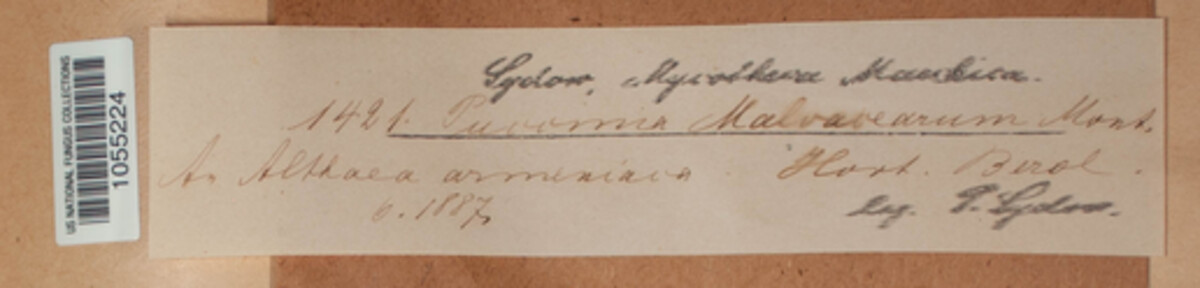 US NATIONAL FUNGUS COLLECTIONS
1055224
Sydow, Mycotheca Marchica.
1421. Puccinia Malvacearum Mont.
An Althaea armeniaca. Hort. Berol.
6. 1887,
leg. P. Sydow.